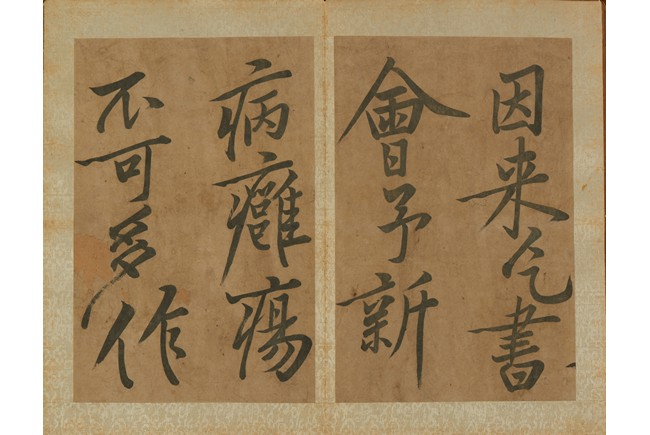 因来乞書
會予新
病癰瘍
不可多作